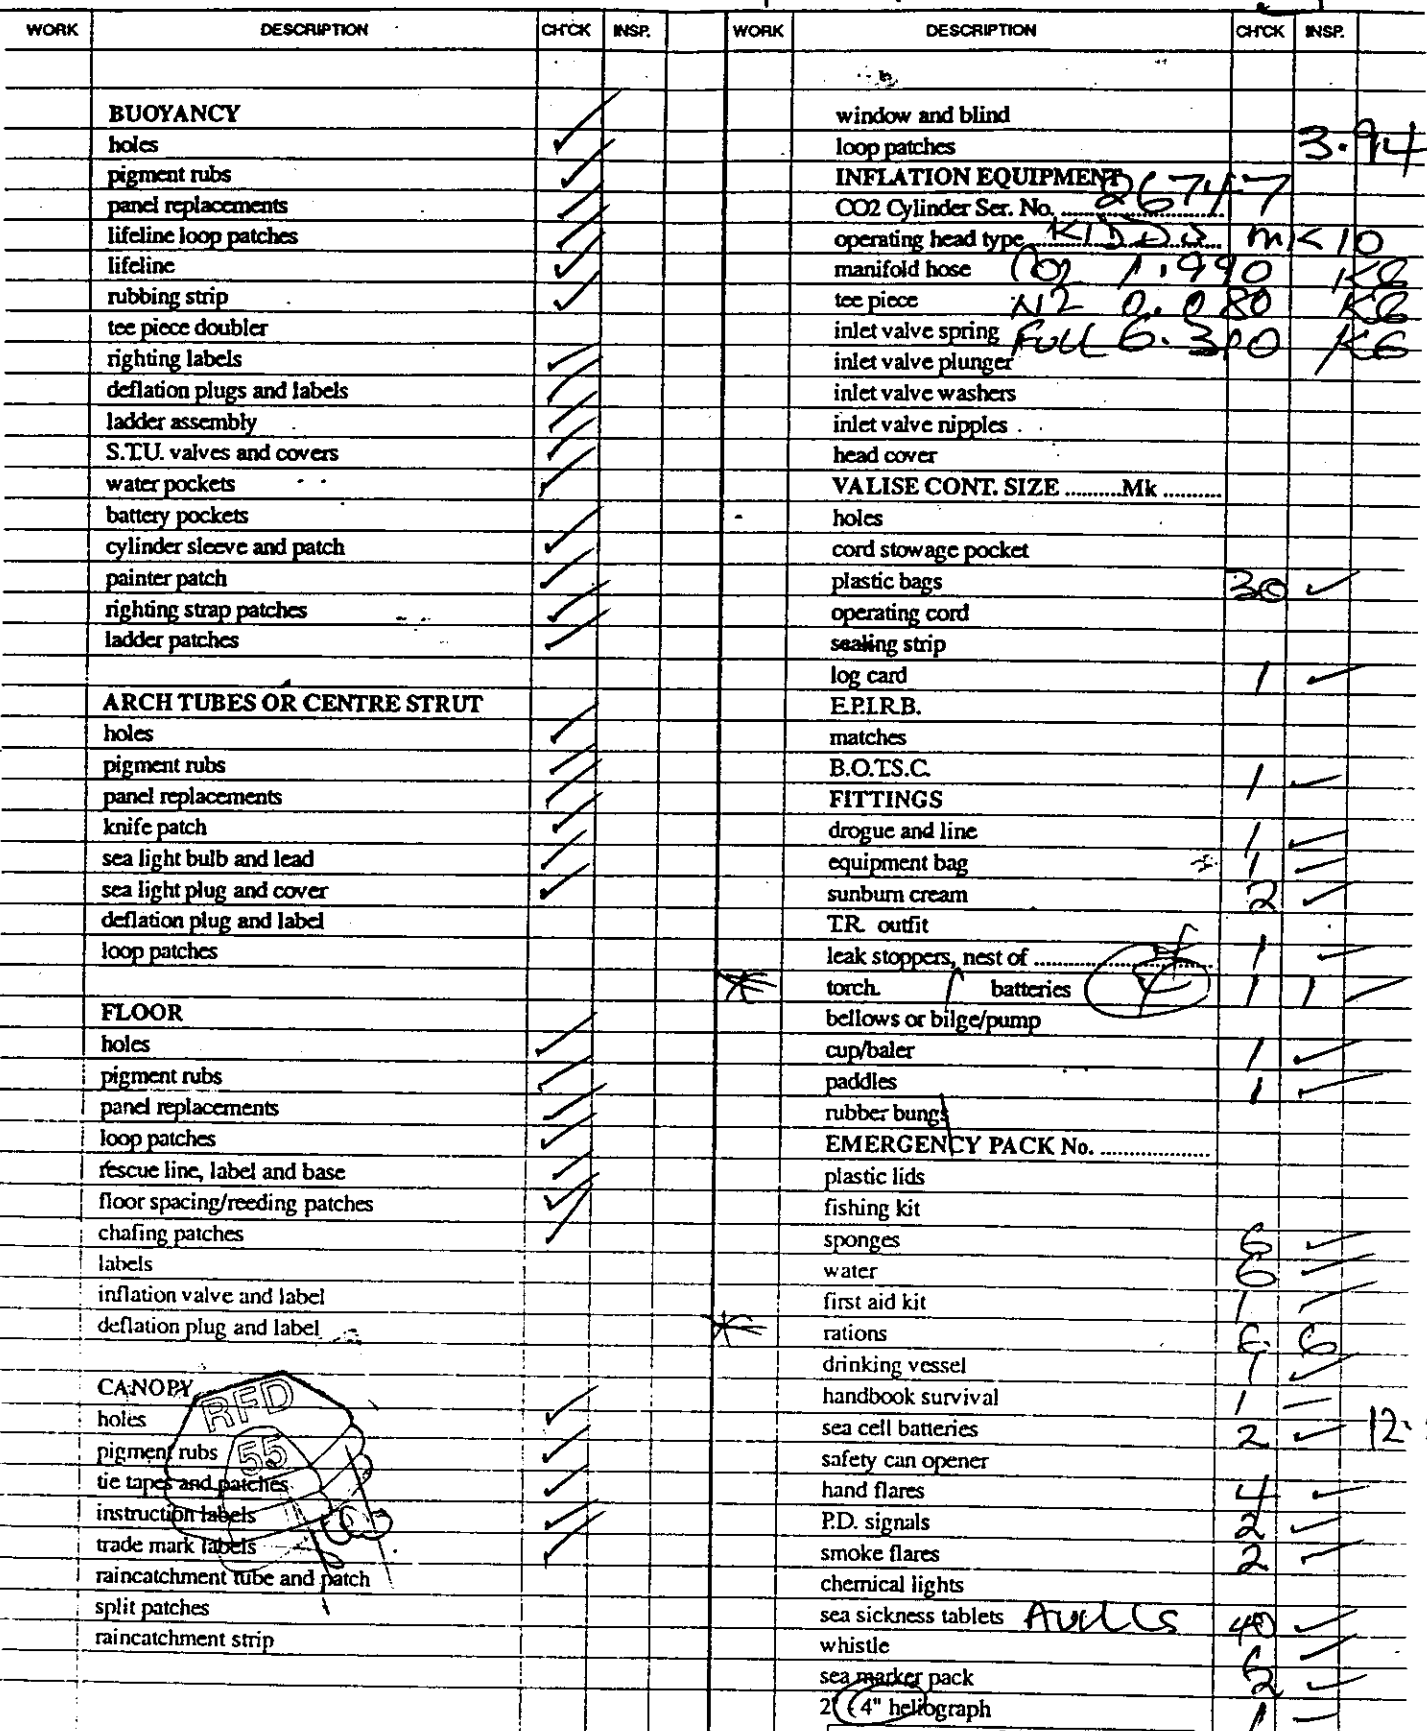 WORK DESCRIPTION CH'CK INSP.
BUOYANCY
holes ✓
pigment rubs ✓
panel replacements ✓
lifeline loop patches ✓
lifeline ✓
rubbing strip ✓
tee piece doubler
righting labels ✓
deflation plugs and labels ✓
ladder assembly ✓
S.T.U. valves and covers ✓
water pockets ✓
battery pockets
cylinder sleeve and patch ✓
painter patch ✓
righting strap patches ✓
ladder patches ✓
ARCH TUBES OR CENTRE STRUT
holes ✓
pigment rubs ✓
panel replacements ✓
knife patch ✓
sea light bulb and lead ✓
sea light plug and cover ✓
deflation plug and label
loop patches
FLOOR
holes ✓
pigment rubs ✓
panel replacements ✓
loop patches ✓
rescue line, label and base ✓
floor spacing/reeding patches ✓
chafing patches ✓
labels
inflation valve and label
deflation plug and label
CANOPY
RFD
holes ✓
55
pigment rubs ✓
tie tapes and patches ✓
instruction labels ✓
trade mark labels ✓
raincatchment tube and patch
split patches
raincatchment strip
WORK DESCRIPTION CH'CK INSP.
window and blind
loop patches 3.94
INFLATION EQUIPMENT
CO2 Cylinder Ser. No. 86747
operating head type KIDDS MK 10
manifold hose CO2 1.990 KG
tee piece N2 0.080 KG
inlet valve spring FULL 6.390 KG
inlet valve plunger
inlet valve washers
inlet valve nipples
head cover
VALISE CONT. SIZE ..........Mk ..........
holes
cord stowage pocket
plastic bags 30 ✓
operating cord
sealing strip
log card 1 ✓
E.P.I.R.B.
matches
B.O.T.S.C. 1 ✓
FITTINGS
drogue and line 1 ✓
equipment bag 1 ✓
sunburn cream 2 ✓
T.R. outfit
leak stoppers, nest of .............................. 1 ✓
torch. 1 batteries 1 1 ✓
bellows or bilge/pump
cup/baler 1 ✓
paddles 1 ✓
rubber bungs
EMERGENCY PACK No. ..................
plastic lids
fishing kit
sponges 6 ✓
water 6 ✓
first aid kit 1 ✓
rations 6 6
drinking vessel 1 ✓
handbook survival 1 ✓
sea cell batteries 2 ✓ 12.
safety can opener
hand flares 4 ✓
P.D. signals 2 ✓
smoke flares 2 ✓
chemical lights
sea sickness tablets 40 ✓
whistle ✓
sea marker pack 2 ✓
2" (4" heliograph 1 ✓